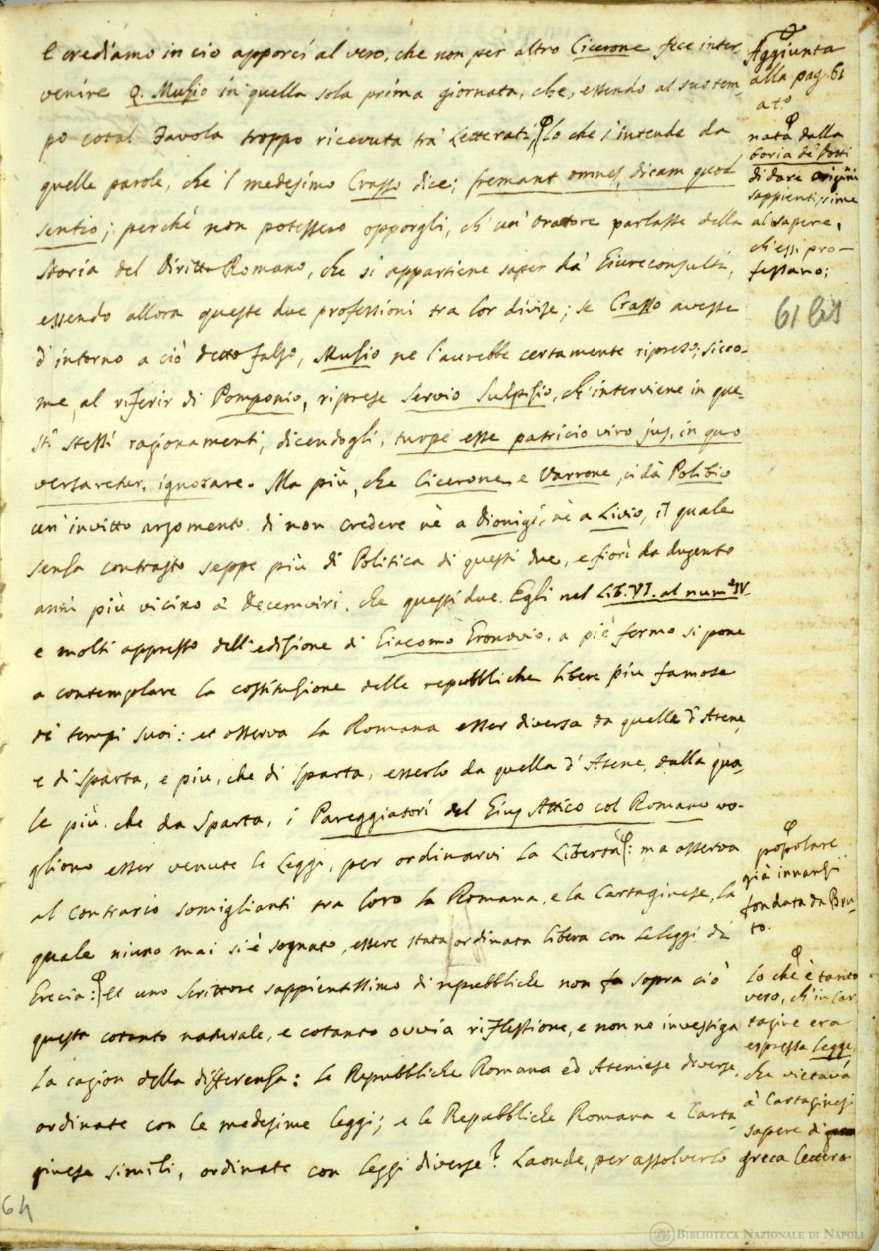 e crediamo in ciò apporci al vero, che non per altro Cicerone fece inter-
venire Q. Muzio in quella sola prima giornata, che, essendo al suo tem-
po cotal Favola troppo ricevuta tra' Letterati, lo che s'intende da
quelle parole, che 'l medesimo Crasso dice; fremant omnes, dicam quod
sentio; perchè non potessero opporgli, ch'un' Oratore parlasse della
storia del Diritto Romano, che si appartiene saper da' Giureconsulti,
essendo allora queste due professioni tra lor divise; se Crasso avesse
d'intorno a ciò detto falso, Muzio ne l'avrebbe certamente ripreso; sicco-
me, al riferir di Pomponio, riprese Servio Sulpizio, ch'interviene in que-
sti stessi ragionamenti, dicendogli, turpe esse patricio viro jus, in quo
versaretur, ignorare. Ma più, che Cicerone e Varrone, ci dà Polibio
un' invitto argomento di non credere nè a Dionigi, nè a Livio, il quale
senza contrasto seppe più di Politica di questi due, e fiorì da dugento
anni più vicino a' Decemviri, che questi due. Egli nel Lib. VI. al num.° IV
e molti appresso dell'edizione di Giacomo Gronovio, a piè fermo si pone
a contemplare la costituzione delle repubbliche libere più famose
de' tempi suoi: et osserva la Romana esser diversa da quelle d'Atene,
e di Sparta, e più, che di Sparta, esserlo da quella d'Atene, dalla qua-
le più, che da Sparta, i Pareggiatori del Gius Attico col Romano vo-
gliono esser venute le Leggi, per ordinarvi la Libertà: ma osserva
al contrario somiglianti tra loro la Romana, e la Cartaginese, la
quale niuno mai si è sognato, essere stata ordinata libera con le leggi di
Grecia: et uno scrittore sappientissimo di repubbliche non fa sopra ciò
questa cotanto naturale, e cotanto ovvia riflessione, e non ne investiga
la cagion della differenza: le Repubbliche Romana ed Ateniese diverse,
ordinate con le medesime leggi; e le Repubbliche Romana e Carta-
ginese simili, ordinate con leggi diverse? Laonde, per assolverlo
Aggiunta
alla pag. 61
nata dalla
boria de' Dotti
di dare origini
sappientissime
al sapere,
ch'essi pro-
fessano;
61 bis
popolare
già innanzi
fondata da Bru-
to.
lo che è tanto
vero, ch'in Car-
tagine era
espressa legge,
che vietava
a' Cartaginesi
sapere di
greca lettera
64
BIBLIOTECA NAZIONALE DI NAPOLI